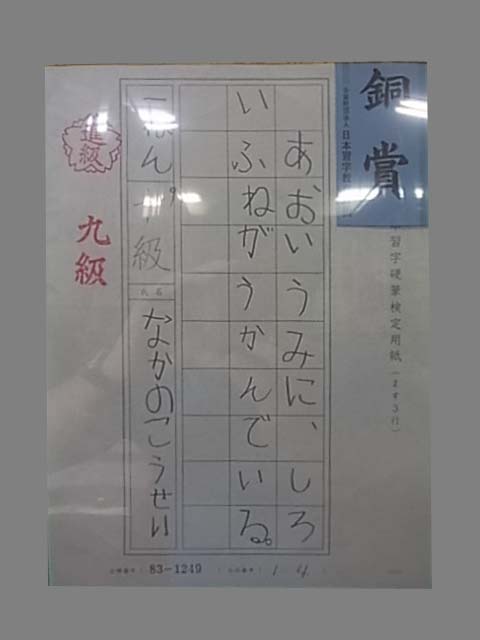 銅賞
公益財団法人 日本習字教
習字硬筆検定用紙(ます3行)
あおいうみに、しろ
いふねがうかんで いる。
一ねん 十級
氏名
なかのこうせい
進級
九級
83-1249
1 4